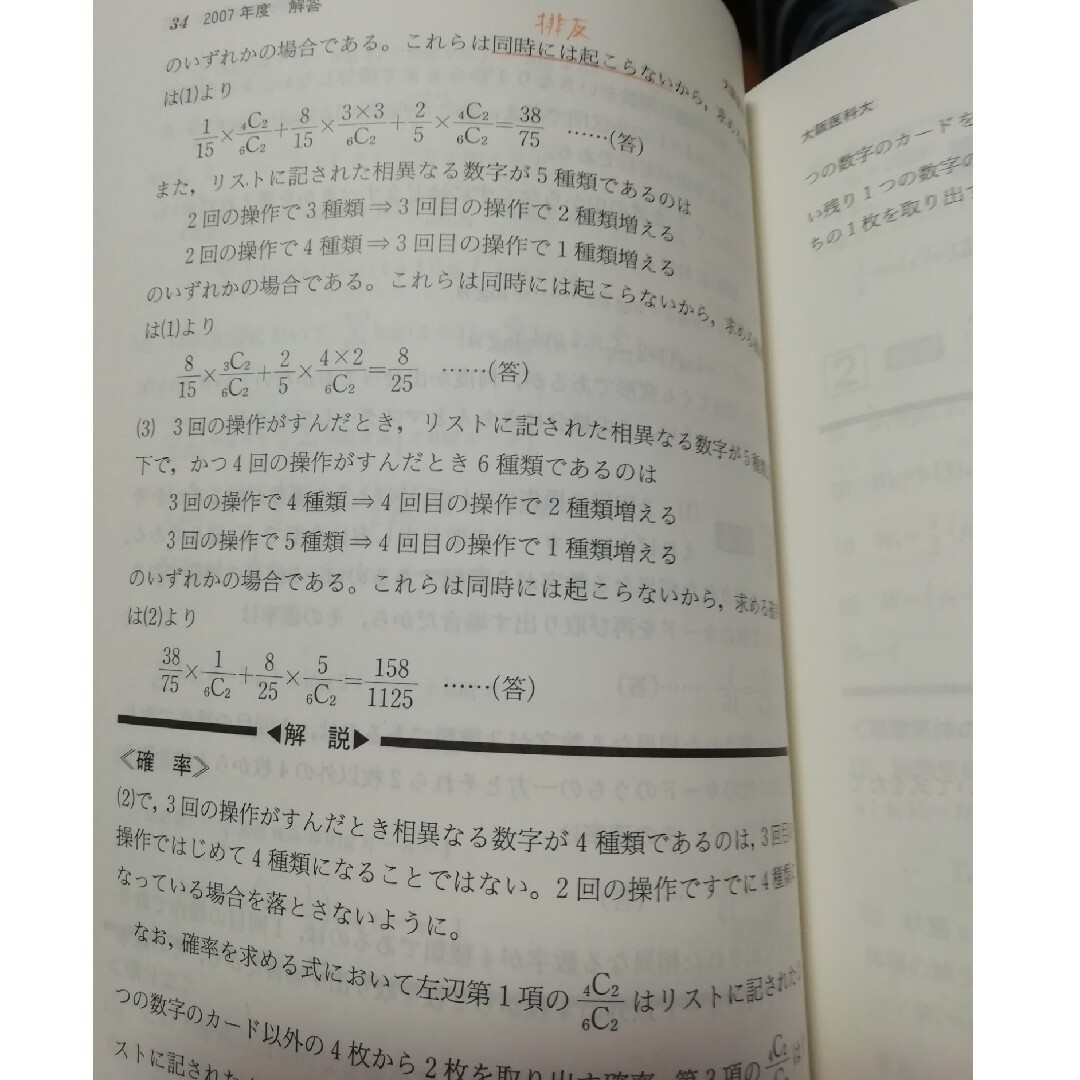 34 2007年度 解答
排反
のいずれかの場合である。これらは同時には起こらないから，求める
は(1)より
1/15×4C2/6C2+8/15×3×3/6C2+2/5×4C2/6C2=38/75 ……(答)
また，リストに記された相異なる数字が5種類であるのは
2回の操作で3種類⇒3回目の操作で2種類増える
2回の操作で4種類⇒3回目の操作で1種類増える
のいずれかの場合である。これらは同時には起こらないから，求める
は(1)より
8/15×3C2/6C2+2/5×4×2/6C2=8/25 ……(答)
(3) 3回の操作がすんだとき，リストに記された相異なる数字が5種類
下で，かつ4回の操作がすんだとき6種類であるのは
3回の操作で4種類⇒4回目の操作で2種類増える
3回の操作で5種類⇒4回目の操作で1種類増える
のいずれかの場合である。これらは同時には起こらないから，求める
は(2)より
38/75×1/6C2+8/25×5/6C2=158/1125 ……(答)
◀解 説▶
≪確 率≫
(2)で，3回の操作がすんだとき相異なる数字が4種類であるのは，3回目
操作ではじめて4種類になることではない。2回の操作ですでに4種類に
なっている場合を落とさないように。
なお，確率を求める式において左辺第1項の 4C2/6C2 はリストに記された
つの数字のカード以外の4枚から2枚を取り出す確率，第3項の 4C2
ストに記された
大阪医科大
つの数字のカードを
い残り1つの数字の
ちの1枚を取り出す
2